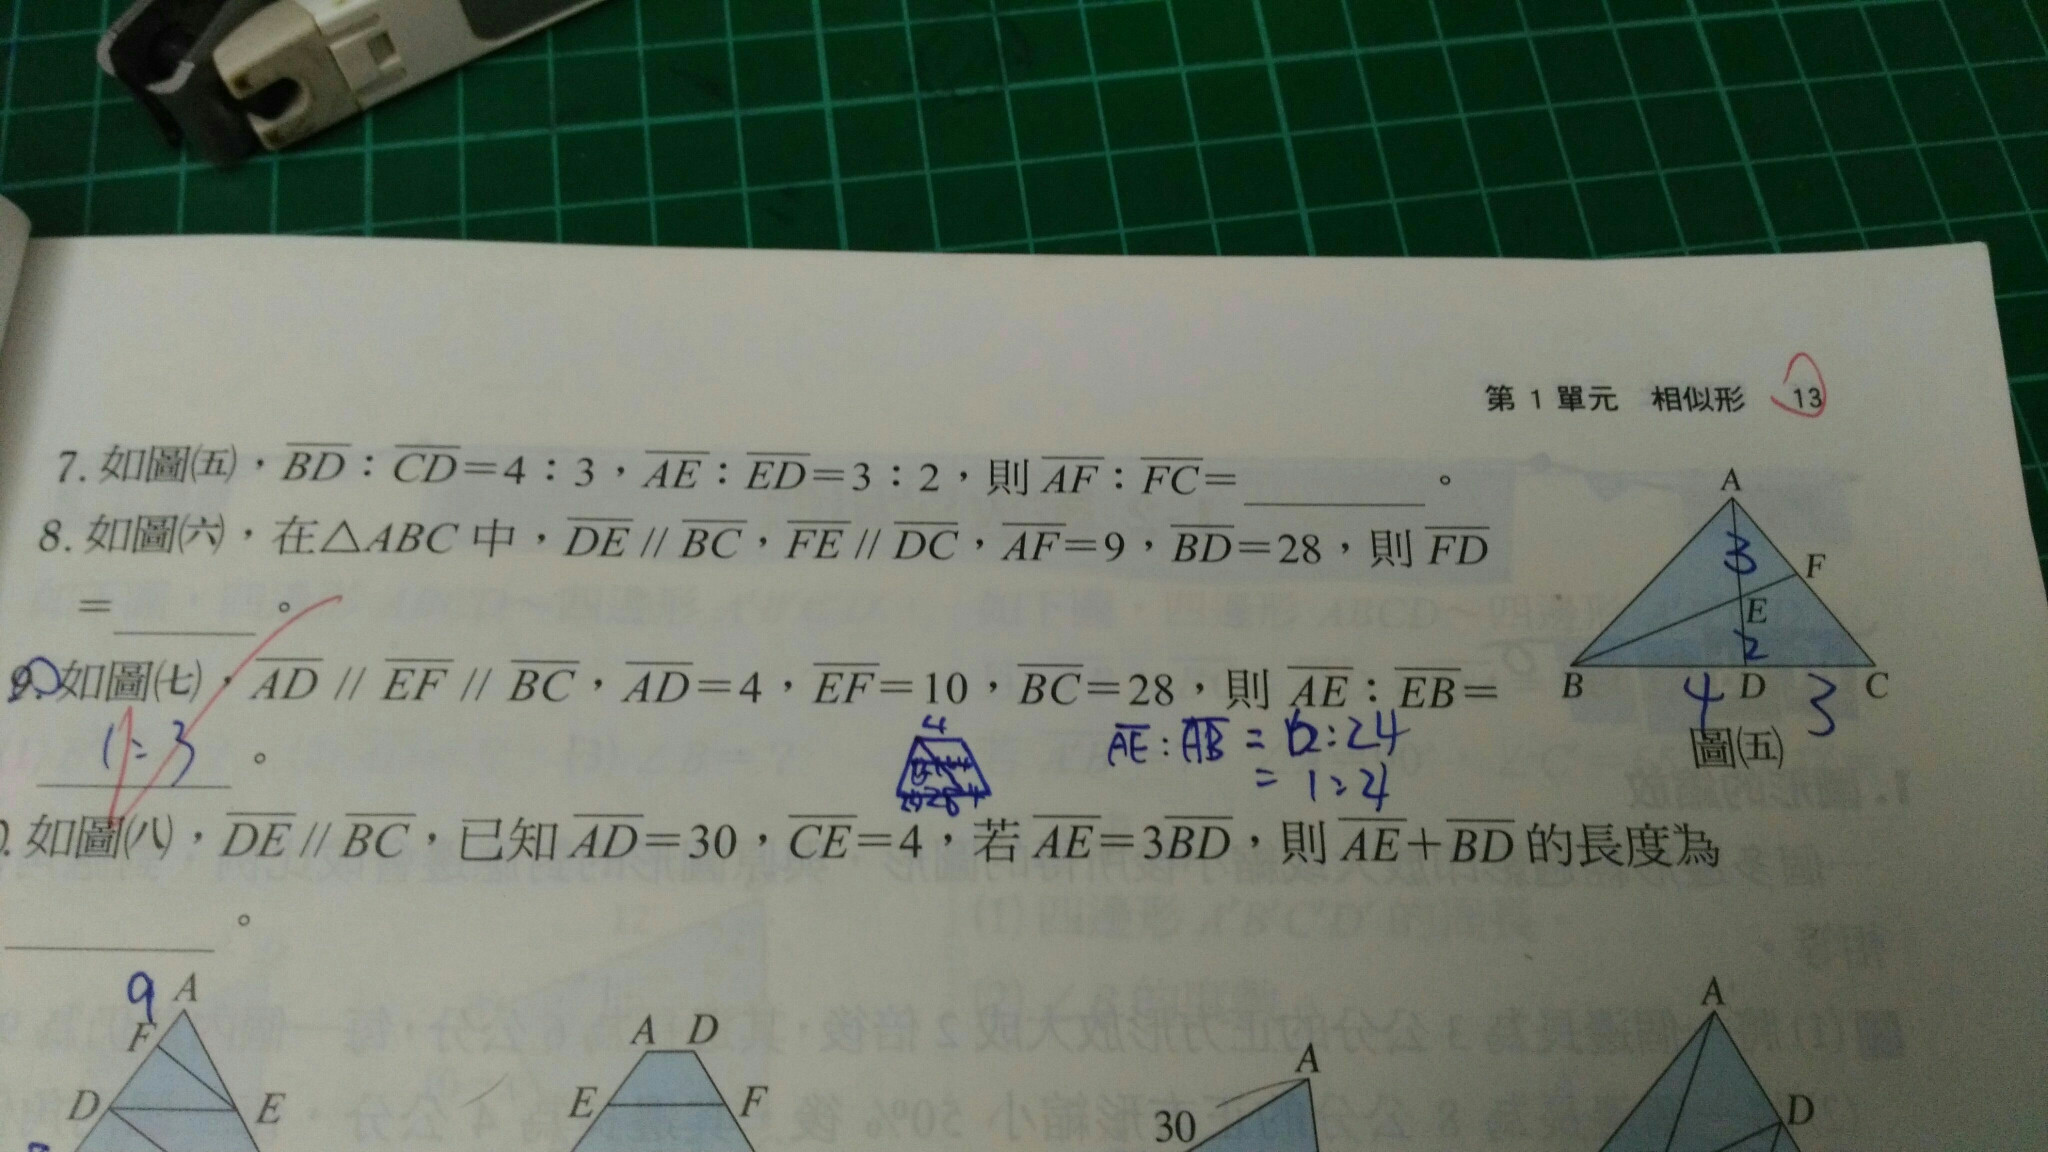 第 1 單元 相似形 13
7. 如圖㈤,BD:CD=4:3,AE:ED=3:2,則 AF:FC= 。
8. 如圖㈥,在△ABC 中,DE // BC,FE // DC,AF=9,BD=28,則 FD
= 。
9. 如圖㈦,AD // EF // BC,AD=4,EF=10,BC=28,則 AE:EB=
1:3 。
4
AE:AB = 6:24
= 1:4
如圖㈧,DE // BC,已知 AD=30,CE=4,若 AE=3BD,則 AE+BD 的長度為
。
A
3
F
E
2
B 4 D 3 C
圖㈤
9 A
F
D E
A D
E F
A
30
A
D